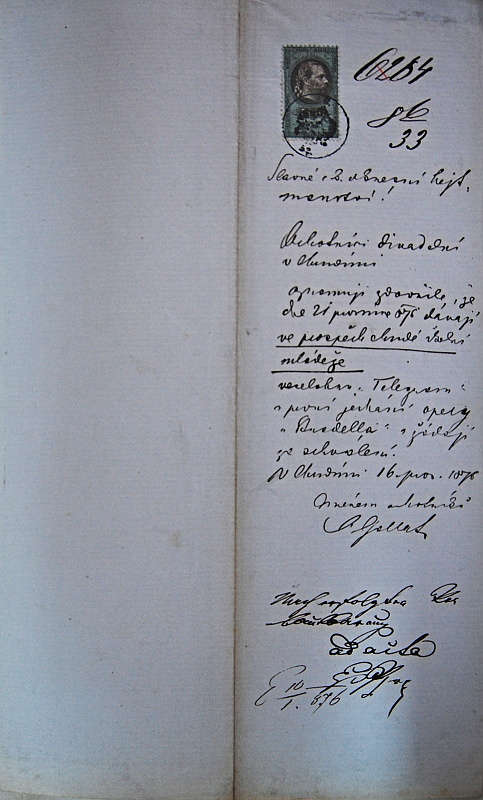 6284
86
33
Slavné c. k. okresní hejt-
manství!
Ochotníci divadelní
v Chrudimi
oznamují zdvořile, že
dne 21 prosince 876 dávají
ve prospěch chudé školní
mládeže
veselohru: "Telegram"
a první jednání opery
"Stradella" a žádají
za schválení.
V Chrudimi 16. pros. 1876
Jménem ochotníků
Nach erfolgter
ad acta
10
1. 876